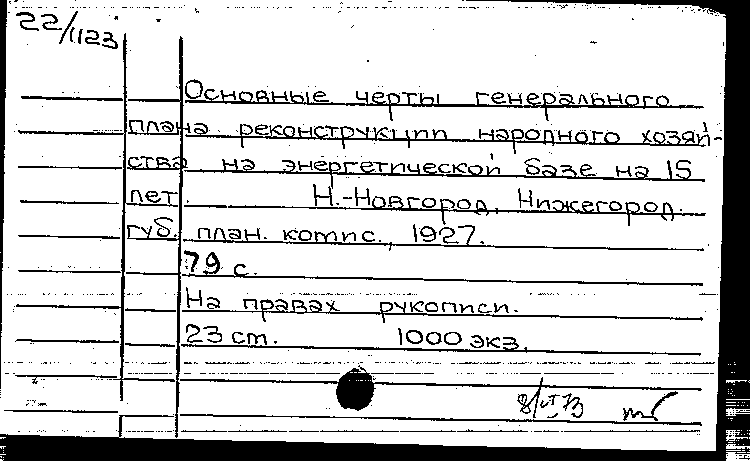 22/1123
Основные черты генерального
плана реконструкции народного хозяй-
ства на энергетической базе на 15
лет. Н.-Новгород, Нижегород.
губ. план. комис., 1927.
79 с.
На правах рукописи.
23 см. 1000 экз.
8/VI 73